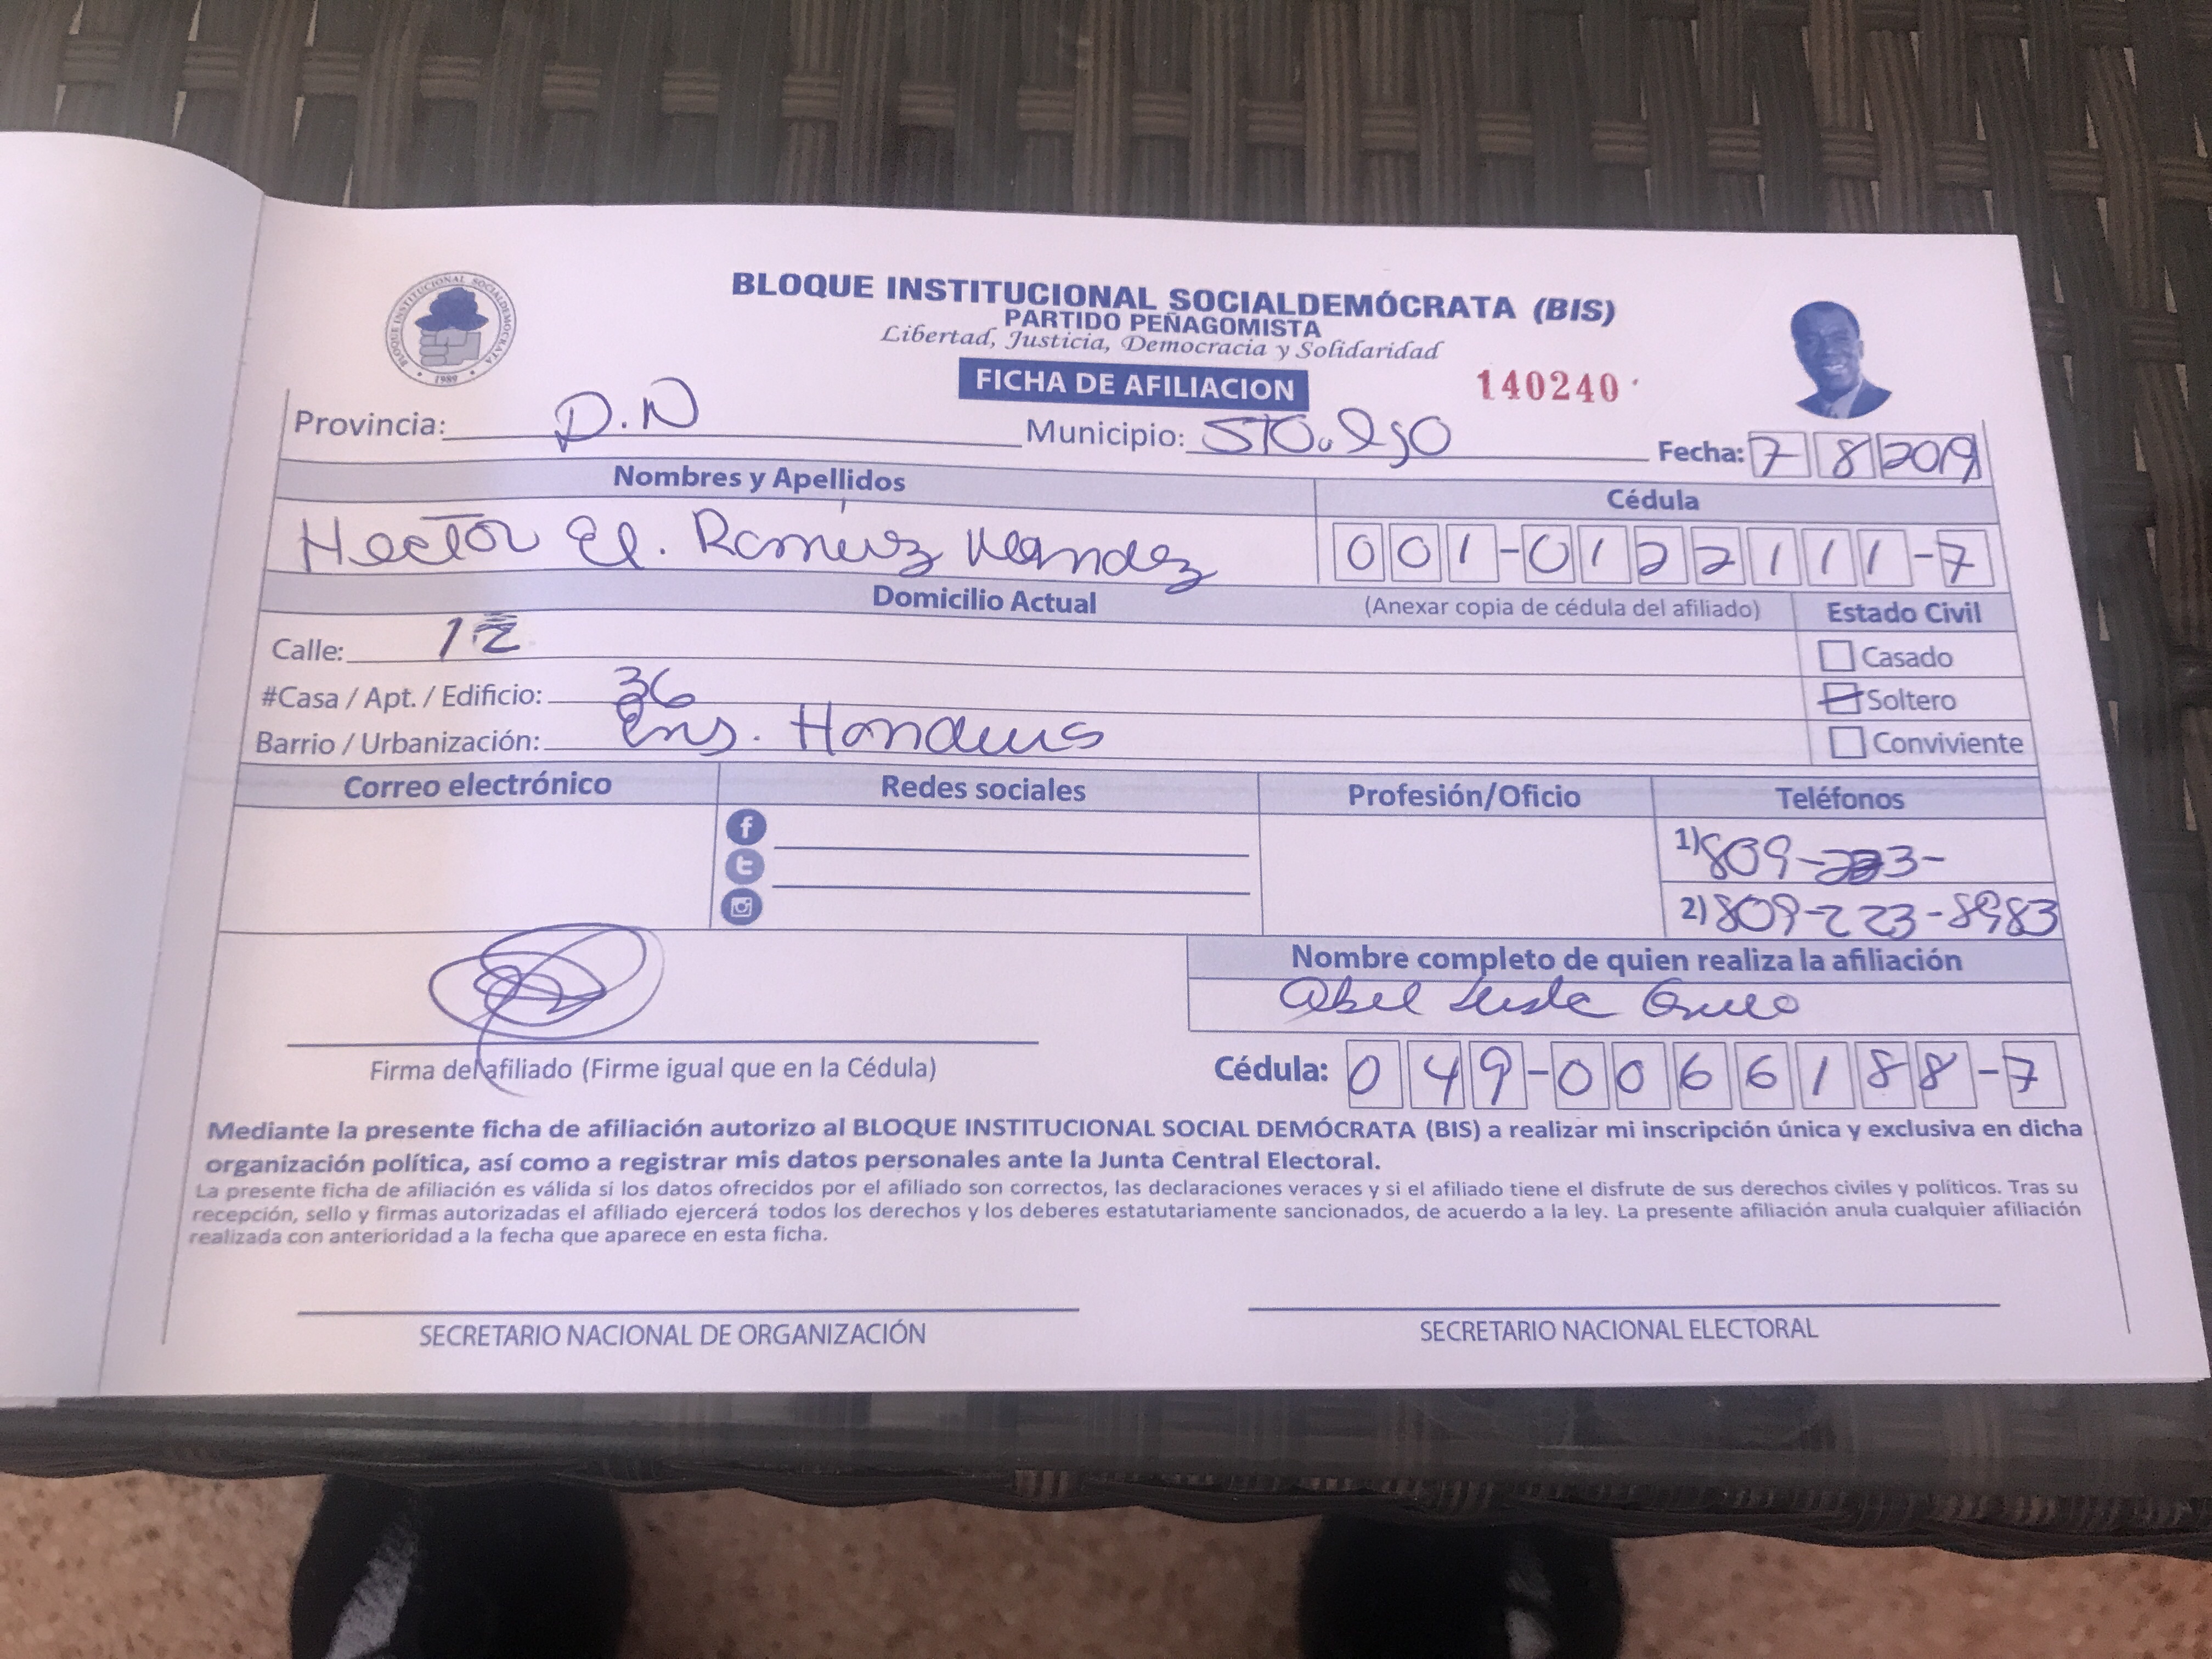 BLOQUE INSTITUCIONAL SOCIALDEMÓCRATA (BIS)
PARTIDO PEÑAGOMISTA
Libertad, Justicia, Democracia y Solidaridad
FICHA DE AFILIACION
140240
BLOQUE INSTITUCIONAL SOCIALDEMOCRATA
1989
Provincia: D.N
Municipio: STO. Dgo
Fecha: 7 8 2019
Nombres y Apellidos
Cédula
Hector El. Ramirez
001-0122111-7
Domicilio Actual
(Anexar copia de cédula del afiliado)
Estado Civil
Calle: 12
Casado
#Casa / Apt. / Edificio: 36
Soltero
Barrio / Urbanización: Ens. Honduras
Conviviente
Correo electrónico
Redes sociales
Profesión/Oficio
Teléfonos
1) 809-223-
2) 809-223-8983
Nombre completo de quien realiza la afiliación
Abel
Firma del afiliado (Firme igual que en la Cédula)
Cédula: 049-0066188-7
Mediante la presente ficha de afiliación autorizo al BLOQUE INSTITUCIONAL SOCIAL DEMÓCRATA (BIS) a realizar mi inscripción única y exclusiva en dicha
organización política, así como a registrar mis datos personales ante la Junta Central Electoral.
La presente ficha de afiliación es válida si los datos ofrecidos por el afiliado son correctos, las declaraciones veraces y si el afiliado tiene el disfrute de sus derechos civiles y políticos. Tras su
recepción, sello y firmas autorizadas el afiliado ejercerá todos los derechos y los deberes estatutariamente sancionados, de acuerdo a la ley. La presente afiliación anula cualquier afiliación
realizada con anterioridad a la fecha que aparece en esta ficha.
SECRETARIO NACIONAL DE ORGANIZACIÓN
SECRETARIO NACIONAL ELECTORAL